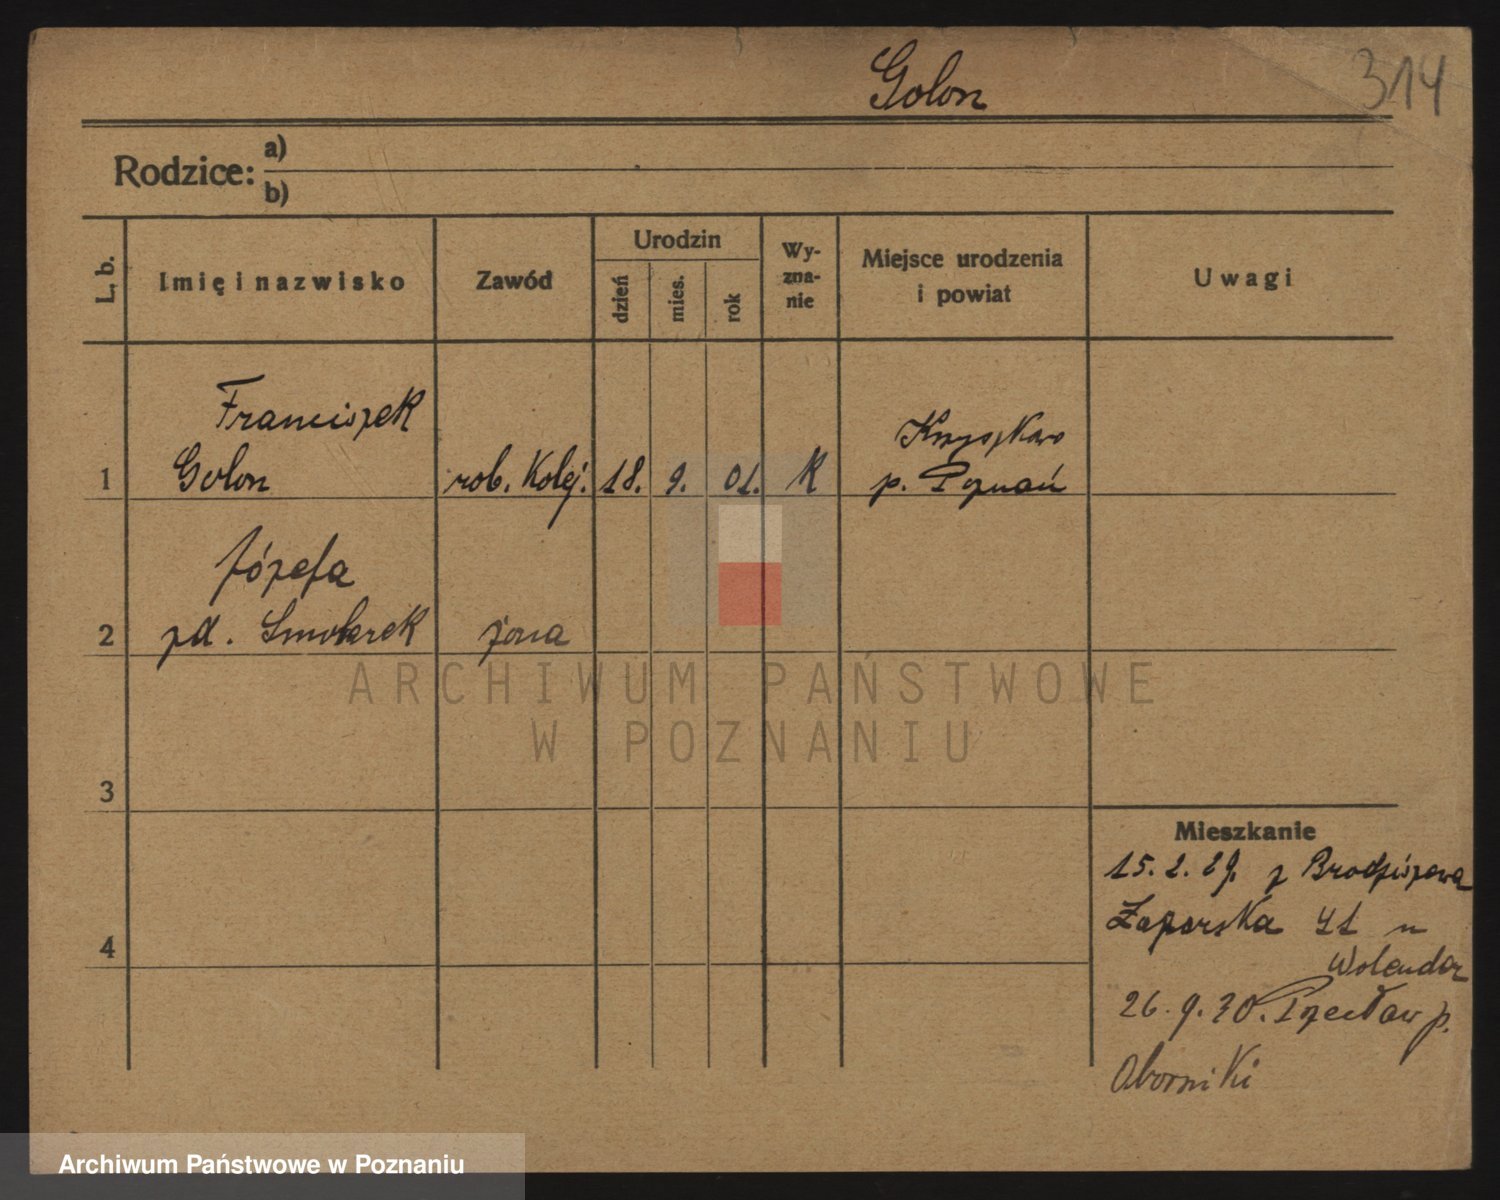 Golon
314
Rodzice: a)
b)
L. b.
Imię i nazwisko
Zawód
Urodzin
dzień
mies.
rok
Wy-
zna-
nie
Miejsce urodzenia
i powiat
Uwagi
Franciszek
Golon
1
rob. Kolej.
18.
9.
01.
K
Krzyszkowo
p. Poznań
Józefa
2
zd. Smolarek
żona
3
4
Mieszkanie
15. 2. 29. z Brodziszewa
Zagórska 41 u
Wolendor
26. 9. 30. Pzecław p.
Oborniki
ARCHIWUM PAŃSTWOWE
W POZNANIU
Archiwum Państwowe w Poznaniu